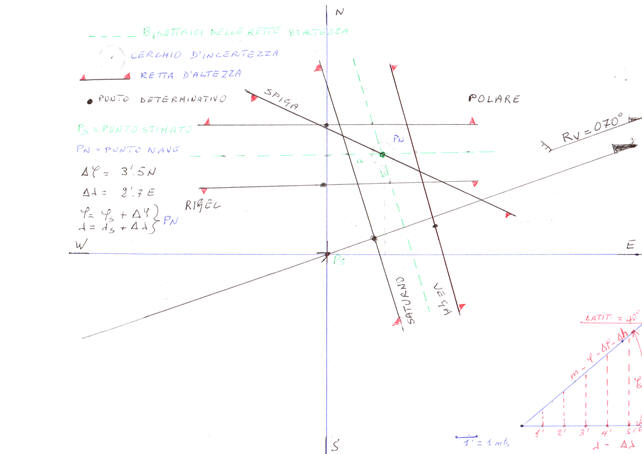 N
BISETTRICI DELLE RETTE D'ALTEZZA
CERCHIO D'INCERTEZZA
RETTA D'ALTEZZA
SPIGA
PUNTO DETERMINATIVO
POLARE
PS = PUNTO STIMATO
PN = PUNTO NAVE
PN
RV = 070°
Δφ = 3'.5 N
Δλ = 2'.7 E
RIGEL
φ = φs + Δφ
λ = λs + Δλ
} PN
W
E
PS
SATURNO
VEGA
LATIT = 40°
m - φ - Δφ - Δh
1' 2' 3' 4' 5'
λ - Δλ
1' = 1 mg
S